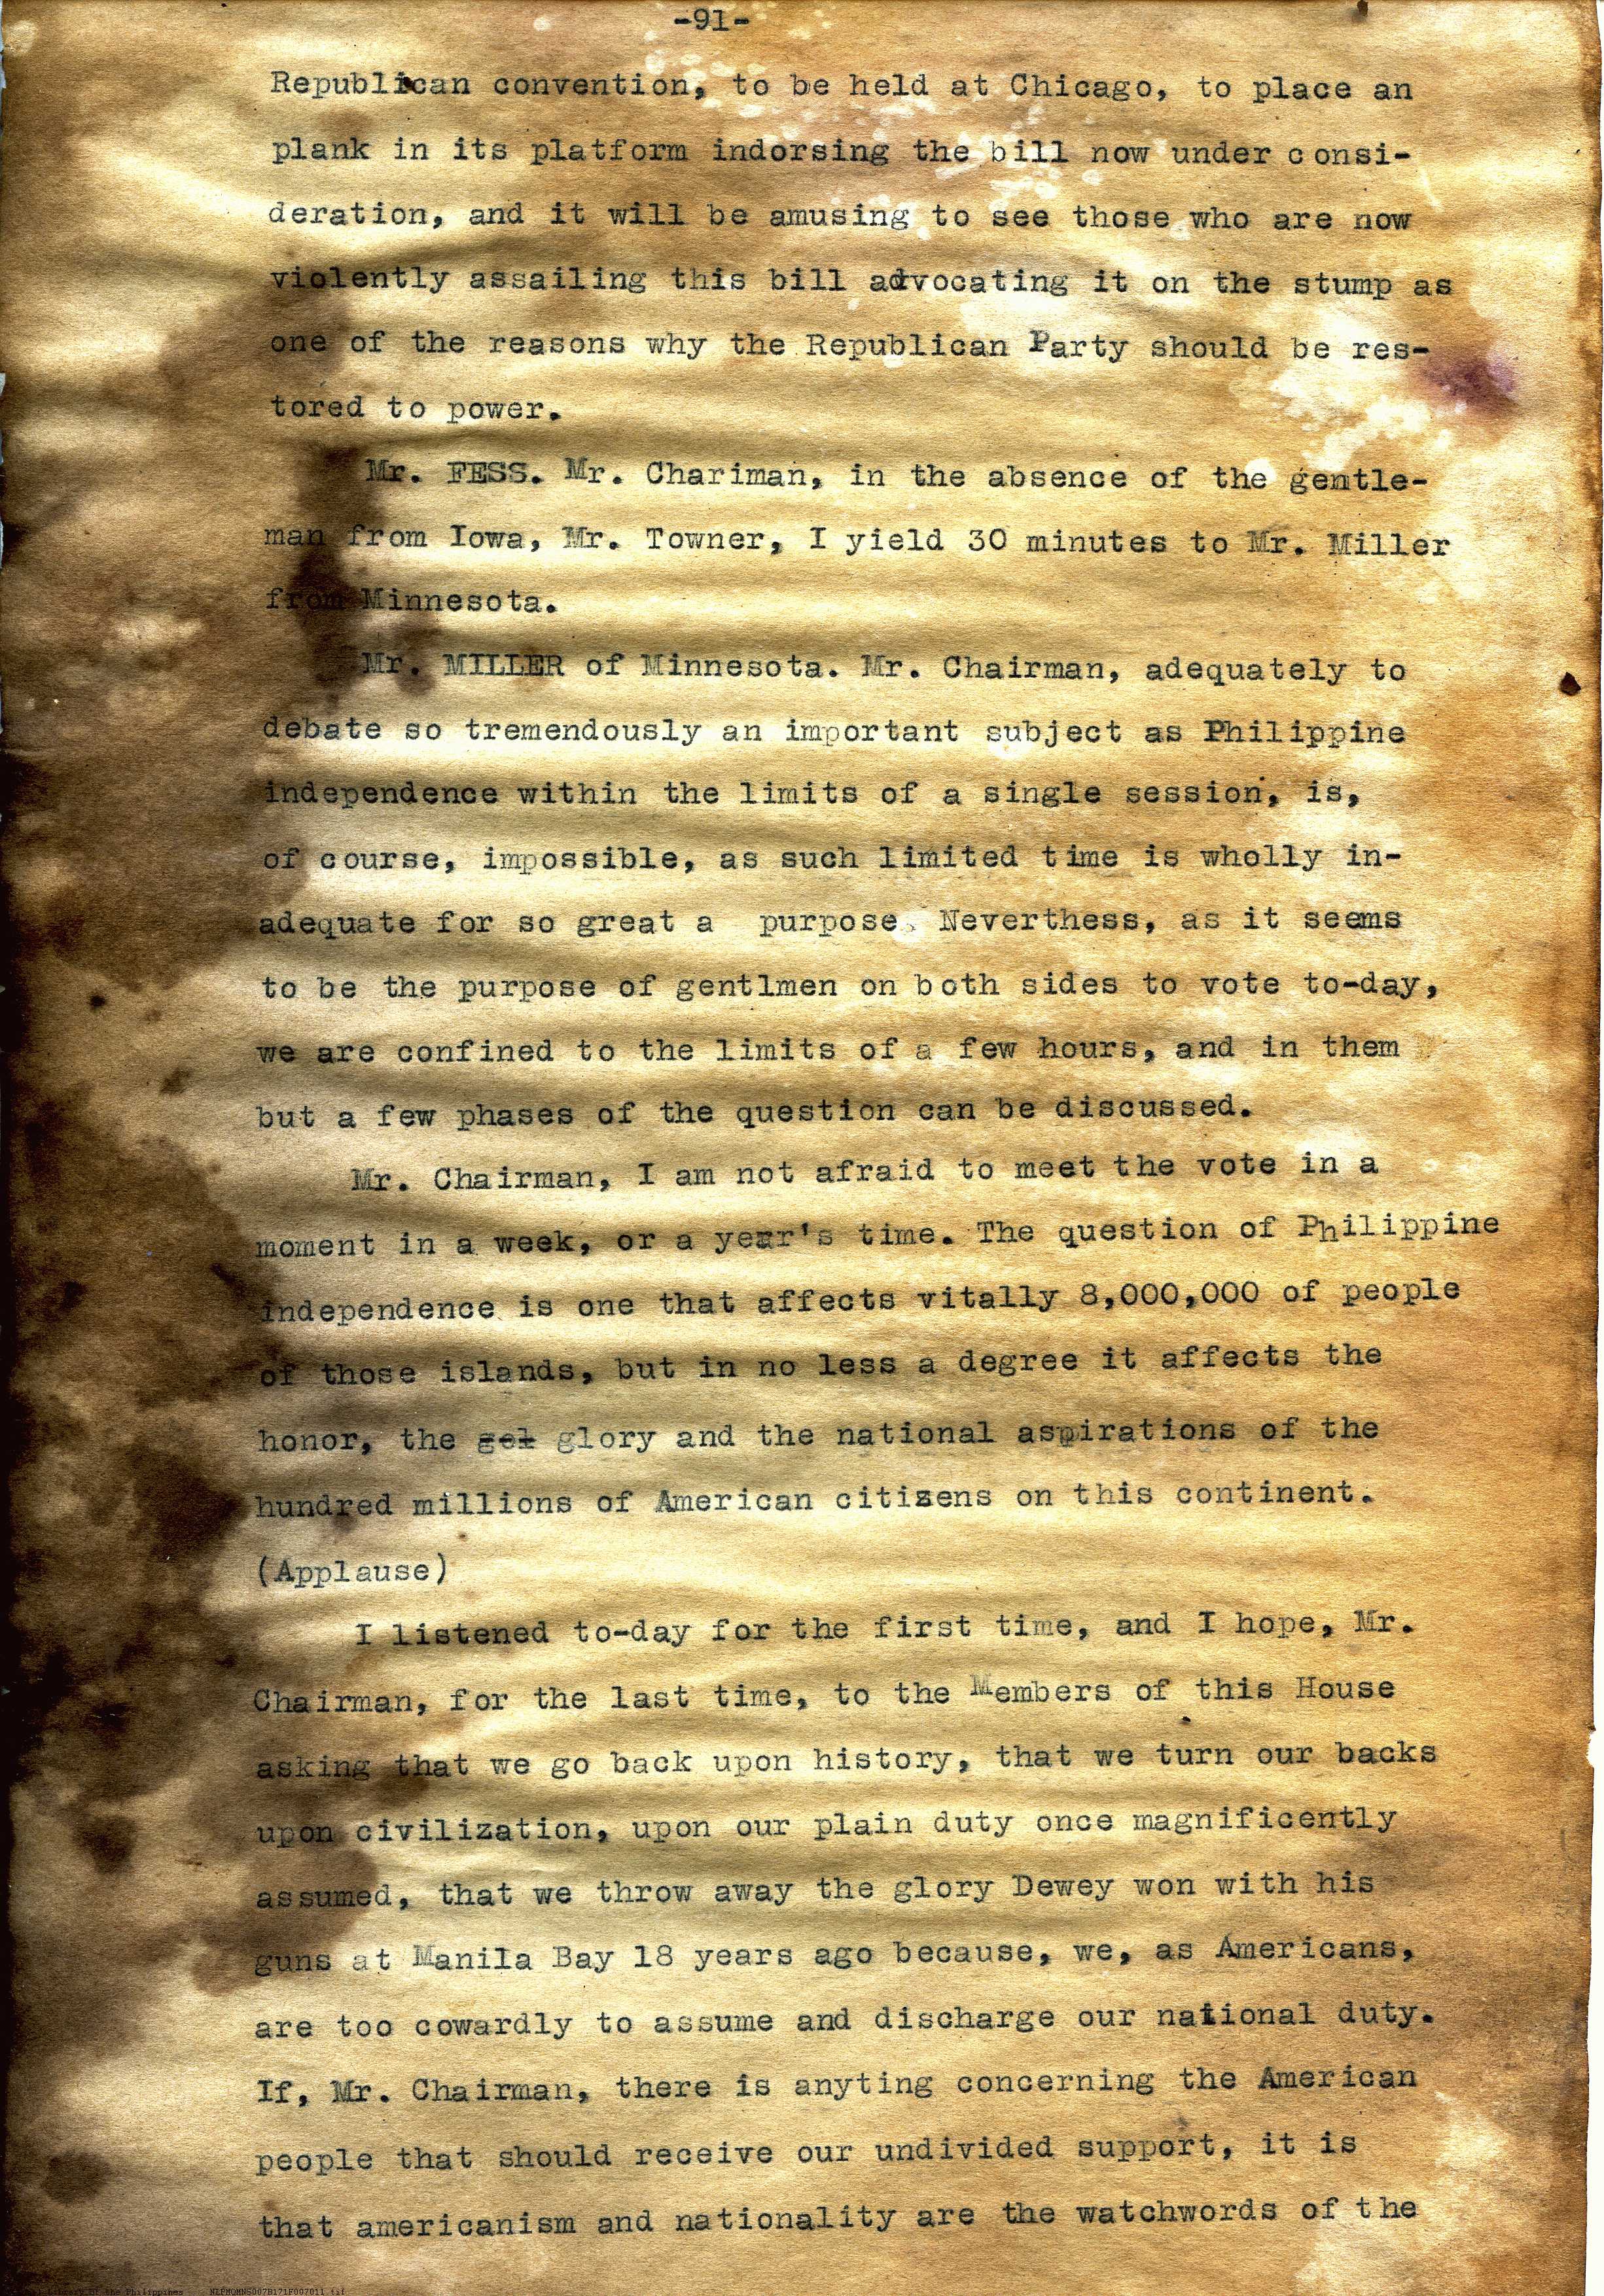 -91-
Republican convention, to be held at Chicago, to place an
plank in its platform indorsing the bill now under consi-
deration, and it will be amusing to see those who are now
violently assailing this bill advocating it on the stump as
one of the reasons why the Republican Party should be res-
tored to power.
Mr. FESS. Mr. Chariman, in the absence of the gentle-
man from Iowa, Mr. Towner, I yield 30 minutes to Mr. Miller
from Minnesota.
Mr. MILLER of Minnesota. Mr. Chairman, adequately to
debate so tremendously an important subject as Philippine
independence within the limits of a single session, is,
of course, impossible, as such limited time is wholly in-
adequate for so great a purpose. Neverthess, as it seems
to be the purpose of gentlmen on both sides to vote to-day,
we are confined to the limits of a few hours, and in them
but a few phases of the question can be discussed.
Mr. Chairman, I am not afraid to meet the vote in a
moment in a week, or a year's time. The question of Philippine
independence is one that affects vitally 8,000,000 of people
of those islands, but in no less a degree it affects the
honor, the gol glory and the national aspirations of the
hundred millions of American citizens on this continent.
(Applause)
I listened to-day for the first time, and I hope, Mr.
Chairman, for the last time, to the Members of this House
asking that we go back upon history, that we turn our backs
upon civilization, upon our plain duty once magnificently
assumed, that we throw away the glory Dewey won with his
guns at Manila Bay 18 years ago because, we, as Americans,
are too cowardly to assume and discharge our national duty.
If, Mr. Chairman, there is anyting concerning the American
people that should receive our undivided support, it is
that americanism and nationality are the watchwords of the
Library of the Philippines NLPMQMNS007B171F007011.tif